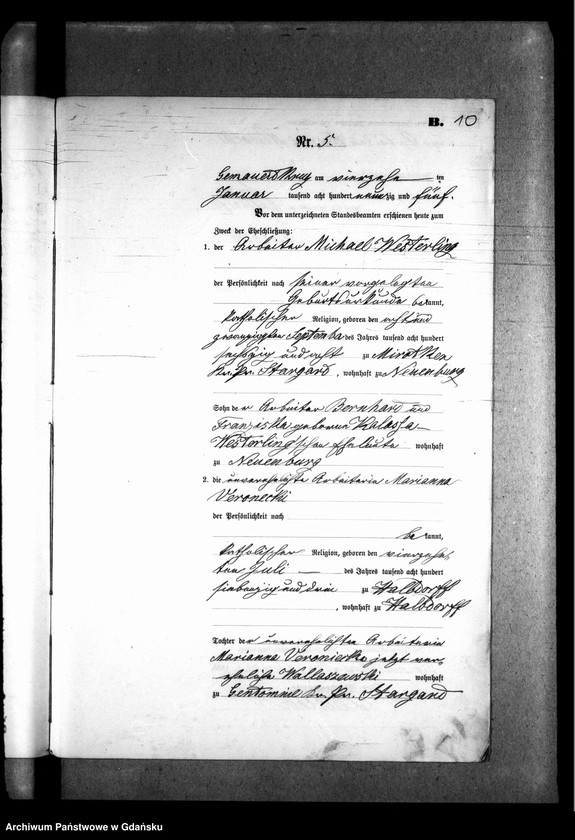 B. 10
Nr. 5.
am vierzehn ten
Januar tausend acht hundert neunzig und fünf.
Vor dem unterzeichneten Standesbeamten erschienen heute zum
Zweck der Eheschließung:
1. der Arbeiter Michael Westerling
der Persönlichkeit nach seiner vorgelegten
Geburtsurkunde bekannt,
katholischer Religion, geboren den acht und
zwanzigsten September des Jahres tausend acht hundert
sechszig und acht zu Mirotken
Kr. Pr. Stargard, wohnhaft zu Neuenburg
Sohn der Arbeiter Bernhard und
Franziska geborene
Westerling'schen Eheleute wohnhaft
zu Neuenburg
2. die unverehelichte Arbeiterin Marianna
Veronecki
der Persönlichkeit nach
bekannt,
katholischer Religion, geboren den vierzehn
ten Juli — des Jahres tausend acht hundert
siebenzig und drei zu Waldorff
, wohnhaft zu Waldorff
Tochter der unverehelichten Arbeiterin
Marianna jetzt ver-
ehelichte Wallaszewski wohnhaft
zu Gentomie Kr. Pr. Stargard
Archiwum Państwowe w Gdańsku